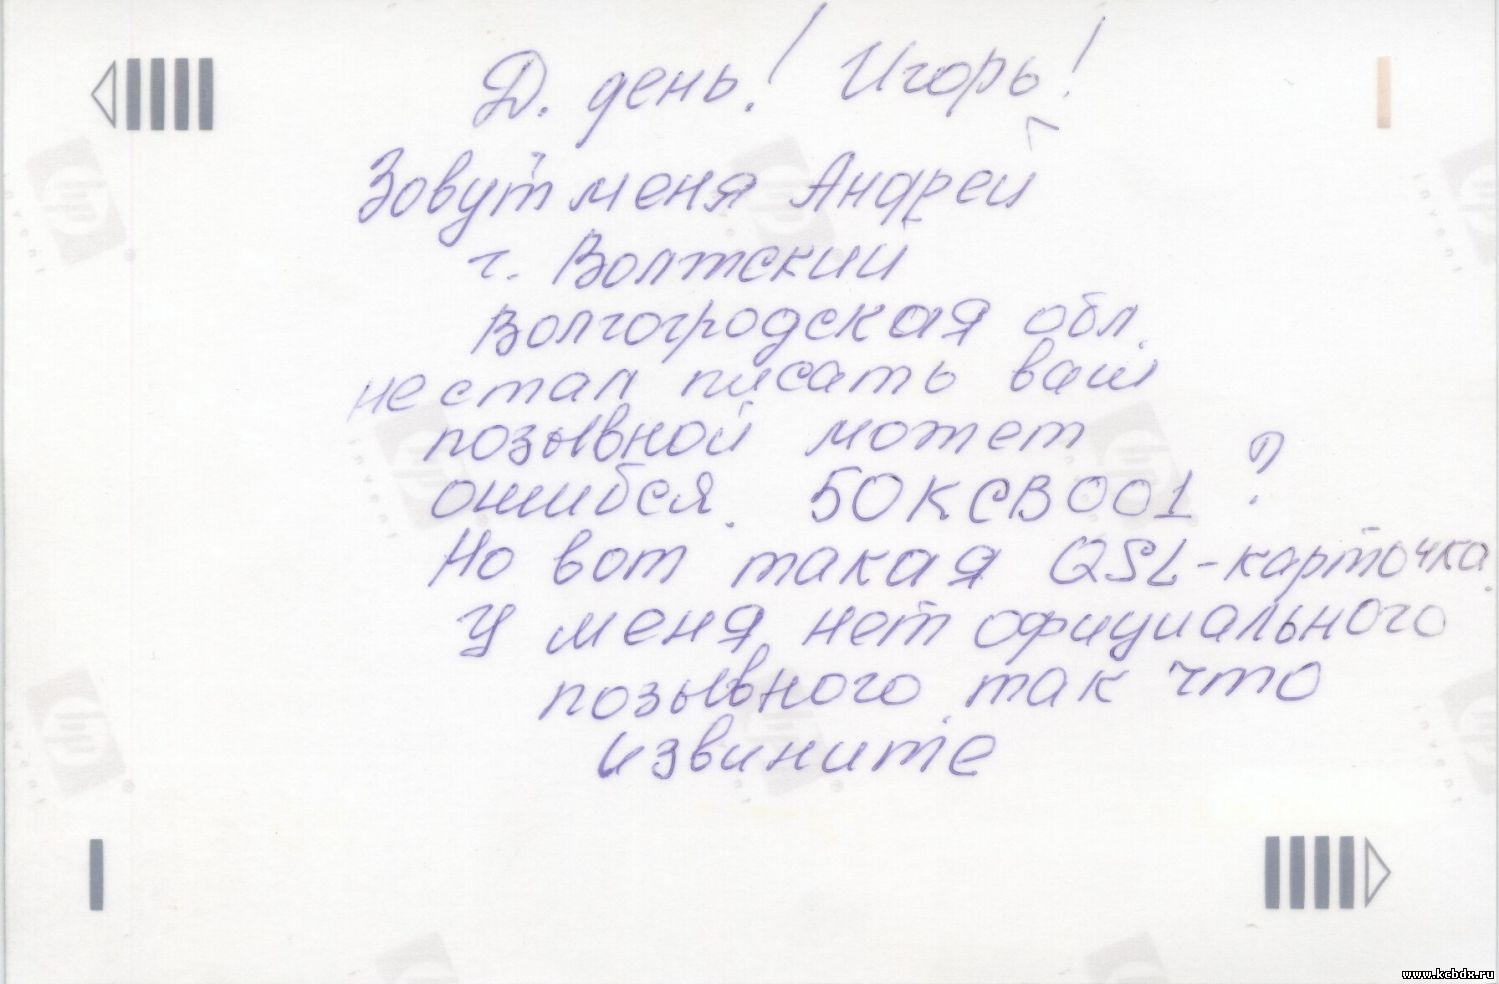 Д. день! Игорь!
Зовут меня Андрей
г. Волжский
Волгогродская обл.
не стал писать ваш
позывной может
ошибся. 50КСВ001 ?
Но вот такая QSL-карточка.
У меня нет официального
позывного так что
извините
hp
invent
www.kcbdx.ru